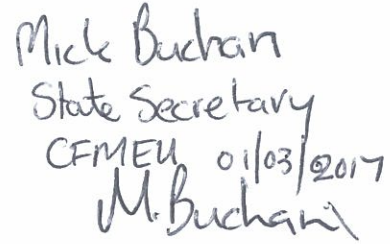 Mick Buchan
State Secretary
CFMEU 01/03/2017
M. Buchan